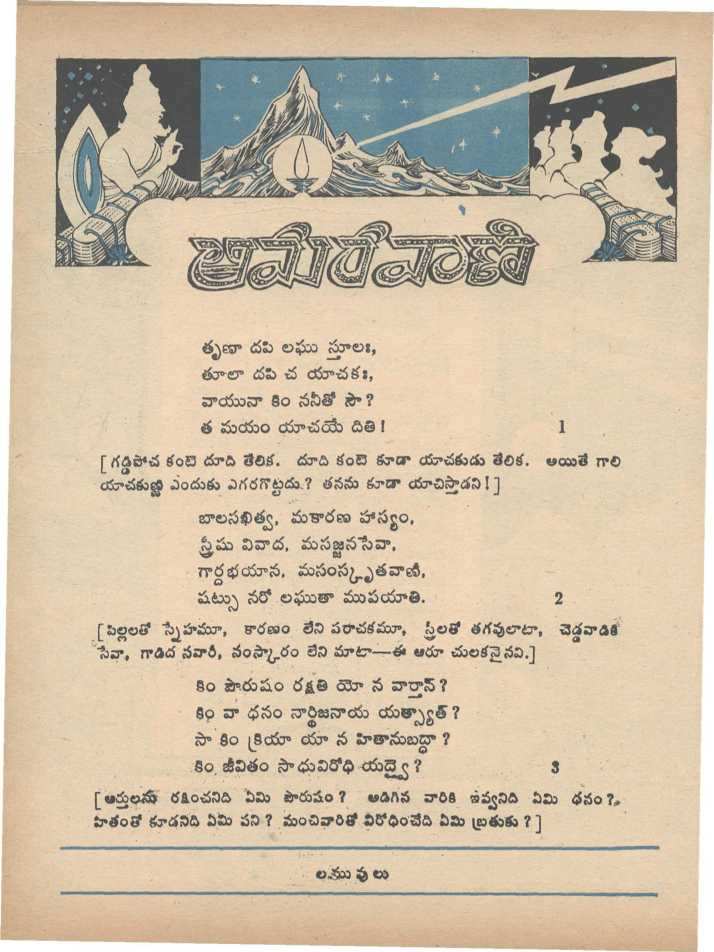 అమరవాణి
తృణా దపి లఘు స్తూలః,
తూలా దపి చ యాచకః,
వాయునా కిం ననీతో సౌ?
త మయం యాచయే దితి! 1
[గడ్డిపోచ కంటె దూది తేలిక. దూది కంటె కూడా యాచకుడు తేలిక. అయితే గాలి
యాచకుణ్ణి ఎందుకు ఎగరగొట్టదు? తనను కూడా యాచిస్తాడని!]
బాలసఖిత్వ, మకారణ హాస్యం,
స్త్రీషు వివాద, మసజ్జనసేవా,
గార్దభయాన, మసంస్కృతవాణీ,
షట్సు నరో లఘుతా ముపయాతి. 2
[పిల్లలతో స్నేహమూ, కారణం లేని పరాచకమూ, స్త్రీలతో తగవులాటా, చెడ్డవాడికి
సేవా, గాడిద సవారీ, సంస్కారం లేని మాటా—ఈ ఆరూ చులకనైనవి.]
కిం పౌరుషం రక్షతి యో న వార్తాన్?
కిం వా ధనం నార్థిజనాయ యత్స్యాత్?
సా కిం క్రియా యా న హితానుబద్ధా?
కిం జీవితం సాధువిరోధి యద్వై? 3
[ఆర్తులను రక్షించనిది ఏమి పౌరుషం? అడిగిన వారికి ఇవ్వనిది ఏమి ధనం?
హితంతో కూడనిది ఏమి పని? మంచివారితో విరోధించేది ఏమి బ్రతుకు?]
లఘువులు